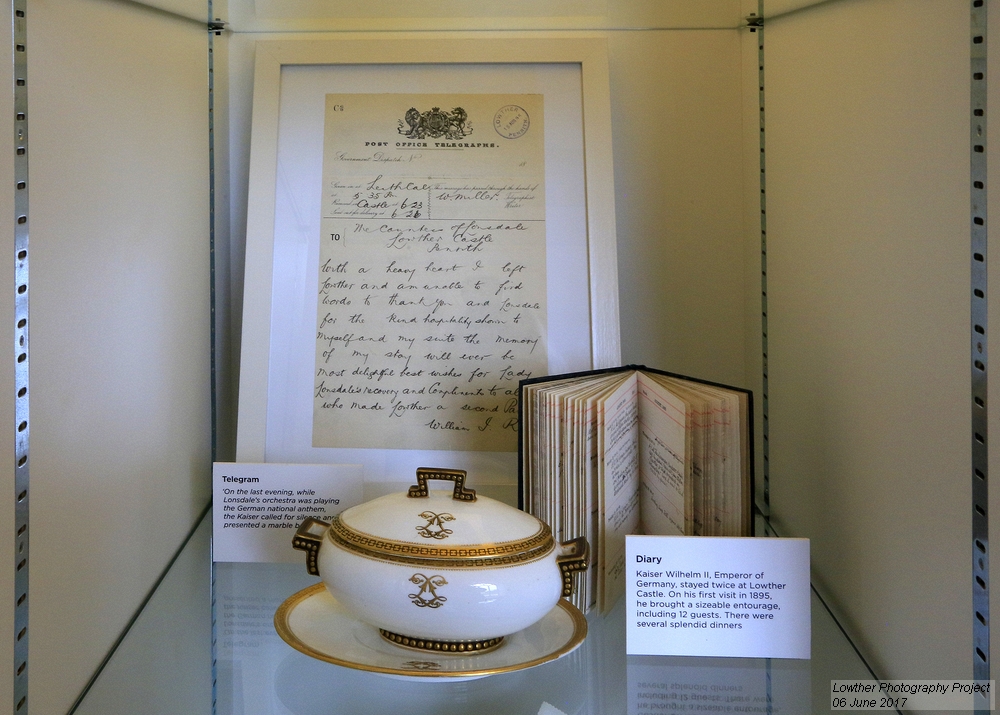 C8
POST OFFICE TELEGRAPHS.
LOWTHER
PENRITH
Government Dispatch No
Given in at Leith Cal
at 5 35 PM
Received Castle at 6-23
Sent out for delivery at 6-26
This message has passed through the hands of
W. Miller.
TO The Countess of Lonsdale
Lowther Castle
Penrith
With a heavy heart I left
Lowther and am unable to find
words to thank you and Lonsdale
for the kind hospitality shown to
myself and my suite the memory
of my stay will ever be
most delightful best wishes for Lady
Lonsdale's recovery and Compliments to al
who made Lowther a second Pa
William I. R
Telegram
'On the last evening, while
Lonsdale's orchestra was playing
the German national anthem,
the Kaiser called for silence and
presented a marble b
Diary
Kaiser Wilhelm II, Emperor of
Germany, stayed twice at Lowther
Castle. On his first visit in 1895,
he brought a sizeable entourage,
including 12 guests. There were
several splendid dinners
Lowther Photography Project
06 June 2017